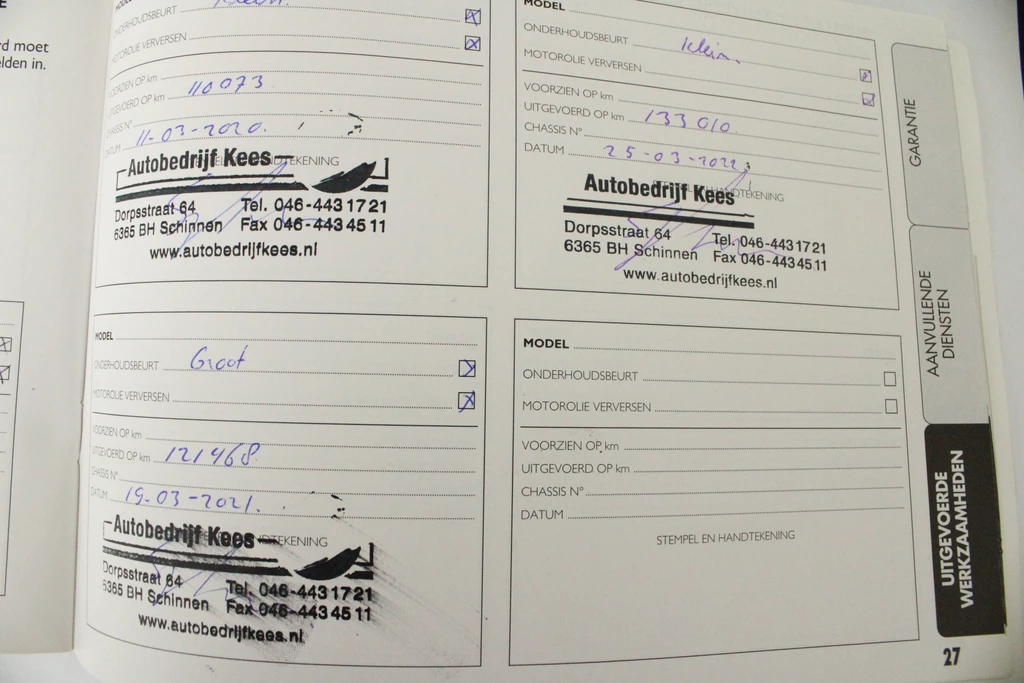 rd moet
lden in.
Klein.
ONDERHOUDSBEURT
MOTOROLIE VERVERSEN
VOORZIEN OP km
UITGEVOERD OP km 110073
CHASSIS N°
DATUM 11-03-2020.
Autobedrijf Kees
Dorpsstraat 64 Tel. 046-443 17 21
6365 BH Schinnen Fax 046-443 45 11
www.autobedrijfkees.nl
MODEL
ONDERHOUDSBEURT Klein.
MOTOROLIE VERVERSEN
VOORZIEN OP km
UITGEVOERD OP km 133010
CHASSIS N°
DATUM 25-03-2022
STEMPEL EN HANDTEKENING
Autobedrijf Kees
Dorpsstraat 64 Tel. 046-443 17 21
6365 BH Schinnen Fax 046-443 45 11
www.autobedrijfkees.nl
MODEL
ONDERHOUDSBEURT Groot
MOTOROLIE VERVERSEN
VOORZIEN OP km
UITGEVOERD OP km 121468
CHASSIS N°
DATUM 19-03-2021.
Autobedrijf Kees
Dorpsstraat 64 Tel. 046-443 17 21
6365 BH Schinnen Fax 046-443 45 11
www.autobedrijfkees.nl
MODEL
ONDERHOUDSBEURT
MOTOROLIE VERVERSEN
VOORZIEN OP km
UITGEVOERD OP km
CHASSIS N°
DATUM
STEMPEL EN HANDTEKENING
GARANTIE
AANVULLENDE
DIENSTEN
UITGEVOERDE
WERKZAAMHEDEN
27